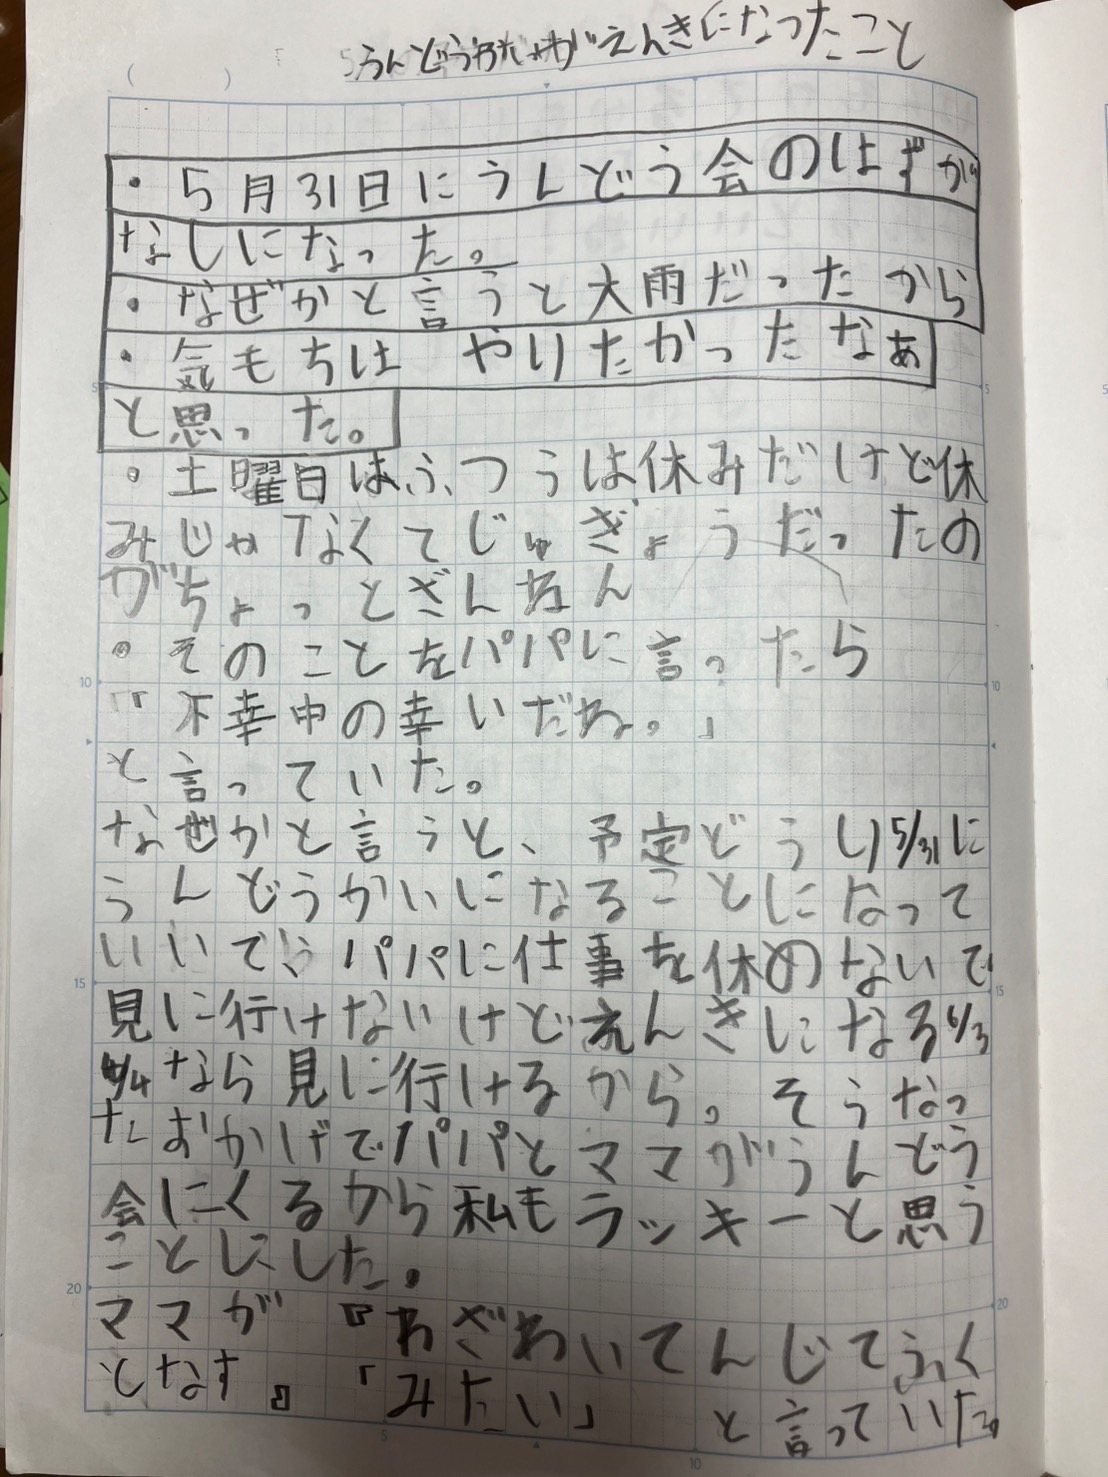 うんどうかいがえんきになったこと
・5月31日にうんどう会のはずが
なしになった。
・なぜかと言うと大雨だったから
・気もちは やりたかったなぁ
と思った。
・土曜日はふつうは休みだけど休
みじゃなくてじゅぎょうだったの
がちょっとざんねん
・そのことをパパに言ったら
「不幸中の幸いだね。」
と言っていた。
なぜかと言うと、予定どうり5/31に
うんどうかいになることになって
いいでもパパに仕事を休めないで
見に行けないけどえんきになる6/3
6/4なら見に行けるから。そうなっ
たおかげでパパとママがうんどう
会にくるから私もラッキーと思う
ことにした。
ママが『わざわいてんじてふく
となす』「みたい」 と言っていた。
5
10
15
20
5
10
15
20
5
10